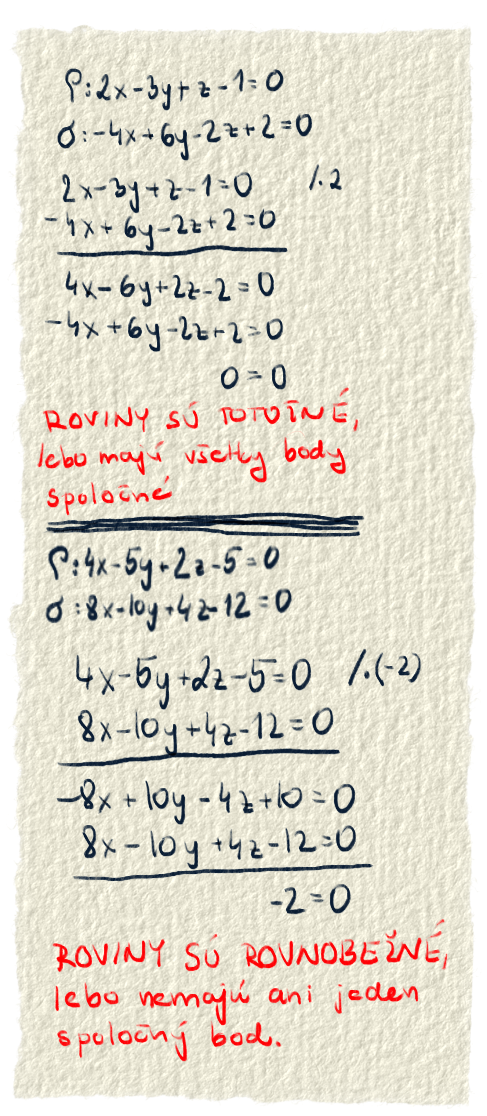 ρ:2x-3y+z-1=0
σ:-4x+6y-2z+2=0
2x-3y+z-1=0 /.2
-4x+6y-2z+2=0
4x-6y+2z-2=0
-4x+6y-2z+2=0
0=0
ROVINY SÚ TOTOŽNÉ,
lebo majú všetky body
spoločné
ρ:4x-5y+2z-5=0
σ:8x-10y+4z-12=0
4x-5y+2z-5=0 /.(-2)
8x-10y+4z-12=0
-8x+10y-4z+10=0
8x-10y+4z-12=0
-2=0
ROVINY SÚ ROVNOBEŽNÉ,
lebo nemajú ani jeden
spoločný bod.